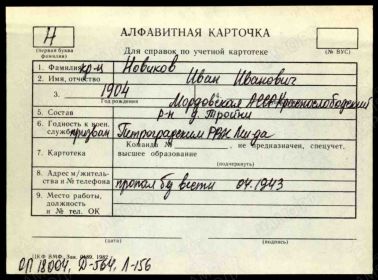 Н
АЛФАВИТНАЯ КАРТОЧКА
(первая буква фамилии)
Для справок по учетной картотеке
(№ ВУС)
1. Фамилия кр-ц Новиков
2. Имя, отчество Иван Иванович
3. 1904
Год рождения
Мордовская АССР Краснослободский
5. Состав р-н д. Тройни
6. Годность к воен. службе призван Петроградским РВК
7. Картотека Команда №, не предназначен, спецучет.
высшее образование
(подчеркнуть)
8. Адрес м/жительства и № телефона пропал б/вести 04.1943
9. Место работы, должность и № тел. ОК
(дата) (подпись)
ЦКФ ВМФ, Зак. 1982
ОП 18004, Д-564, Л-156